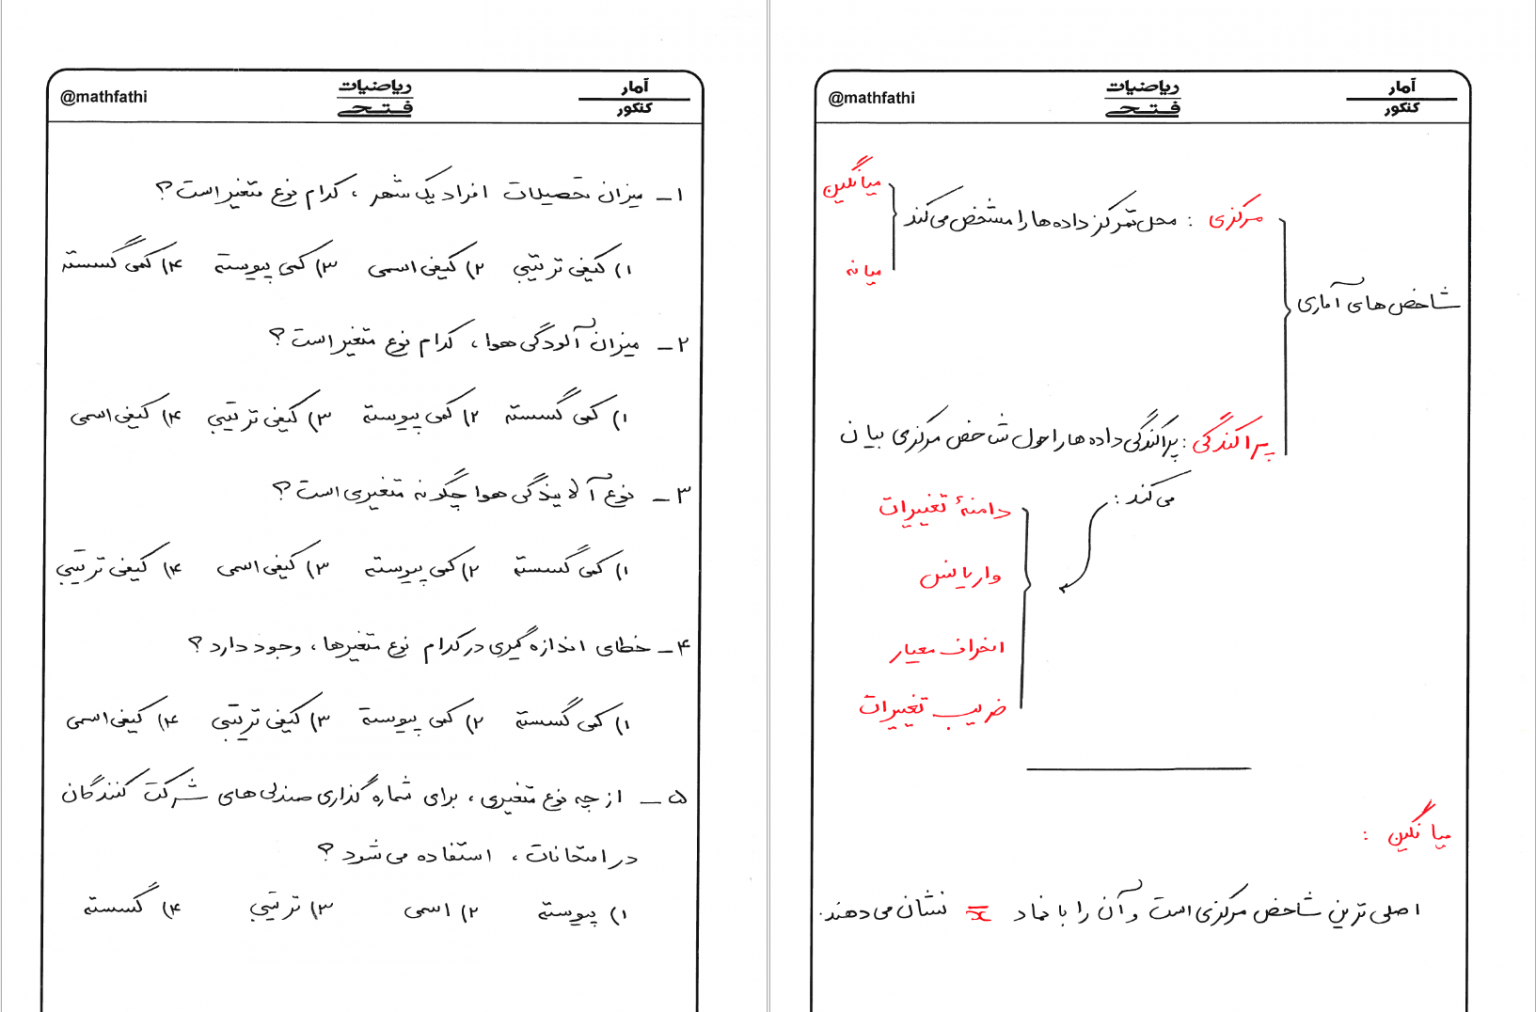 آمار
کنکور
ریاضیات
فتحی
@mathfathi
شاخص‌های آماری
مرکزی : محل تمرکز داده‌ها را مشخص می‌کند
میانگین
میانه
پراکندگی : پراکندگی داده‌ها را حول شاخص مرکزی بیان
می‌کند :
دامنهٔ تغییرات
واریانس
انحراف معیار
ضریب تغییرات
میانگین :
اصلی‌ترین شاخص مرکزی است و آن را با نماد x̄ نشان می‌دهند.
آمار
کنکور
ریاضیات
فتحی
@mathfathi
۱ـ میزان تحصیلات افراد یک شهر ، کدام نوع متغیر است ؟
۱) کیفی ترتیبی ۲) کیفی اسمی ۳) کمی پیوسته ۴) کمی گسسته
۲ـ میزان آلودگی هوا ، کدام نوع متغیر است ؟
۱) کمی گسسته ۲) کمی پیوسته ۳) کیفی ترتیبی ۴) کیفی اسمی
۳ـ نوع آلایندگی هوا چگونه متغیری است ؟
۱) کمی گسسته ۲) کمی پیوسته ۳) کیفی اسمی ۴) کیفی ترتیبی
۴ـ خطای اندازه‌گیری در کدام نوع متغیرها ، وجود دارد ؟
۱) کمی گسسته ۲) کمی پیوسته ۳) کیفی ترتیبی ۴) کیفی اسمی
۵ـ از چه نوع متغیری ، برای شماره گذاری صندلی‌های شرکت کنندگان
در امتحانات ، استفاده می‌شود ؟
۱) پیوسته ۲) اسمی ۳) ترتیبی ۴) گسسته